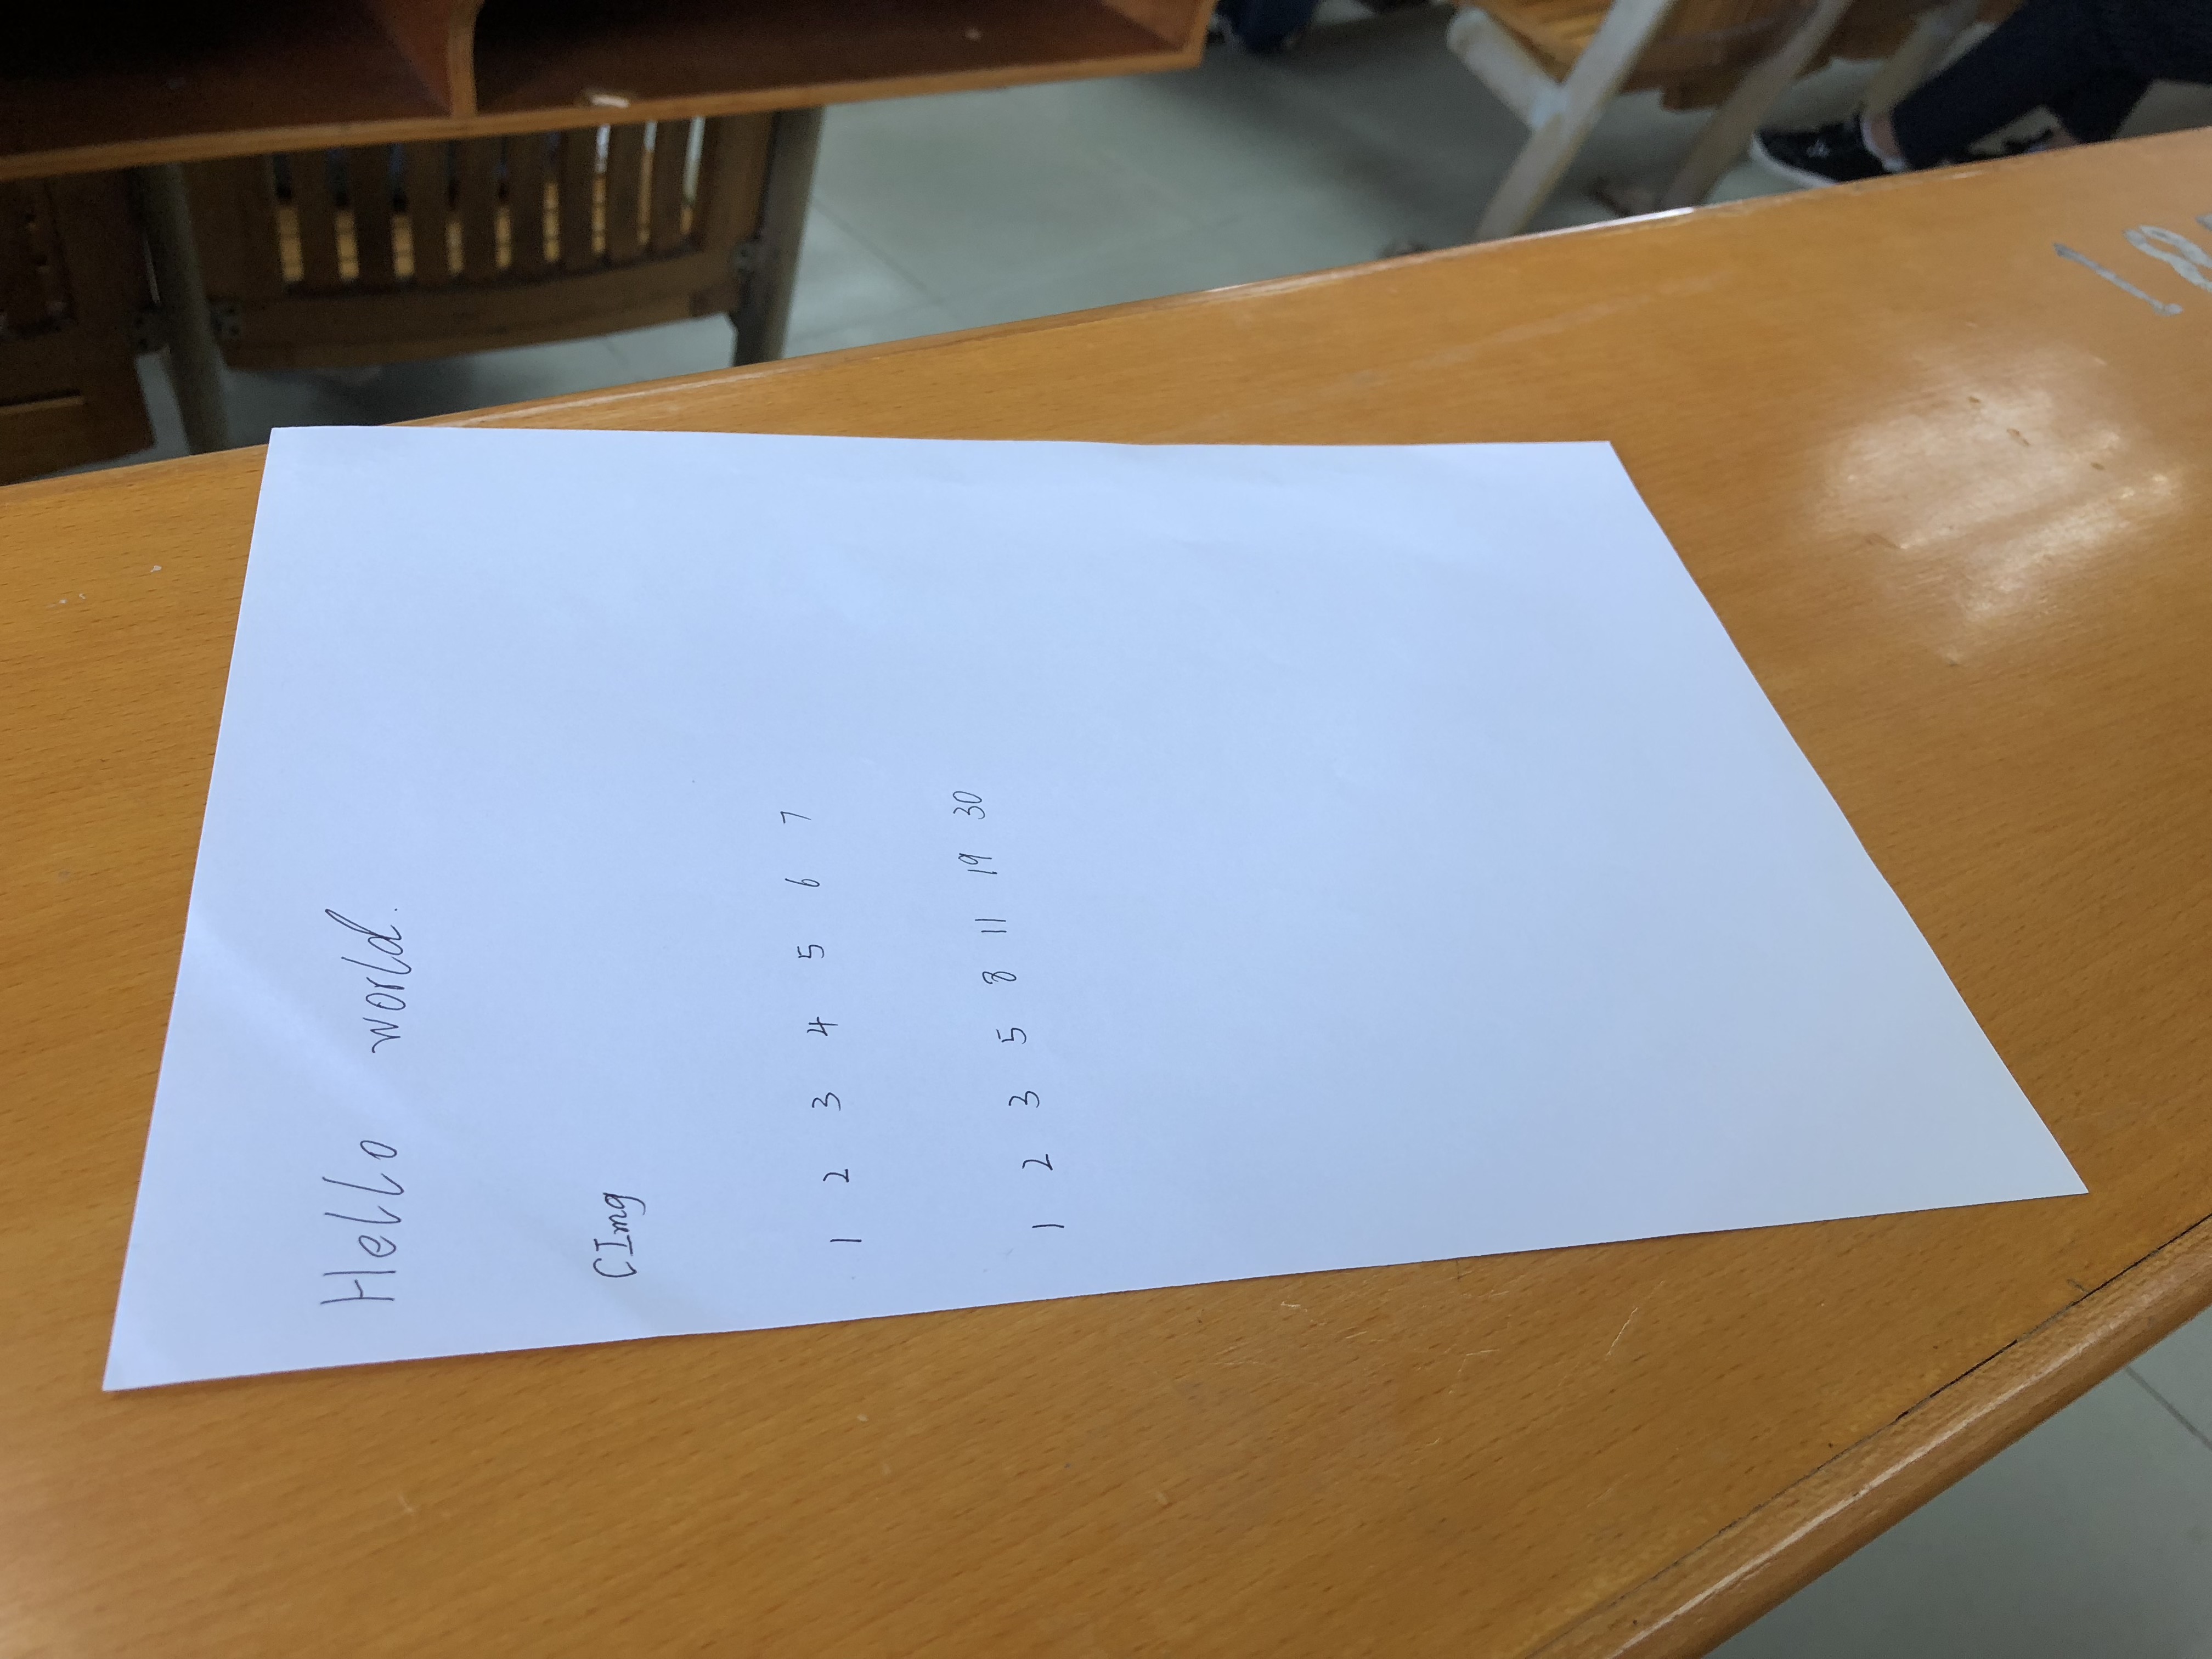 Hello world.
CImg
1 2 3 4 5 6 7
1 2 3 5 8 11 19 30